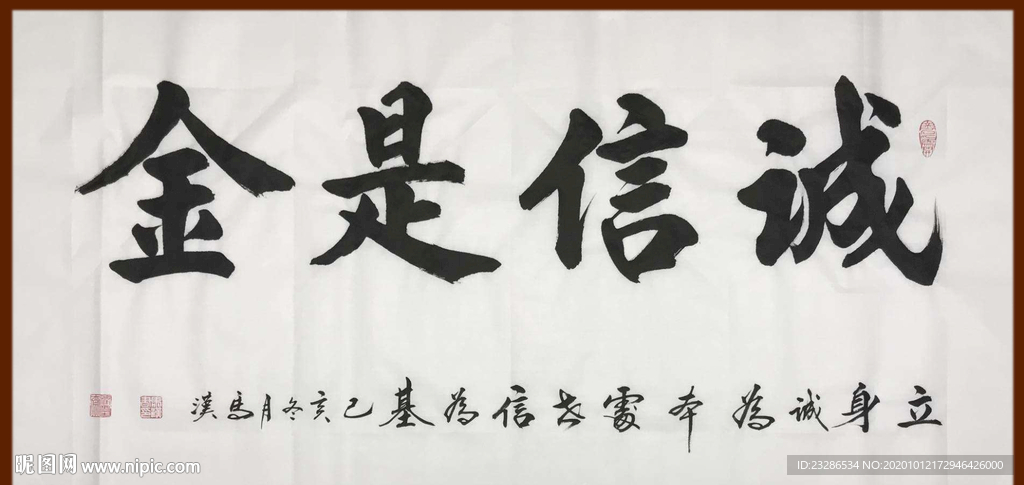 誠信是金
立身誠為本處世信為基己亥冬月馬漢
昵图网 www.nipic.com
ID:23286534 NO:20201012172946426000